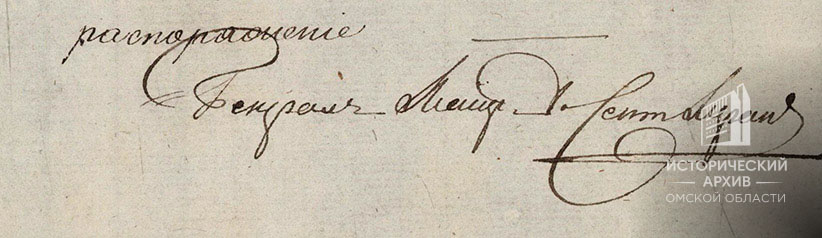 распоряженіе
Генералъ Маіоръ де Сент Лоран
ИСТОРИЧЕСКИЙ
АРХИВ
ОМСКОЙ ОБЛАСТИ